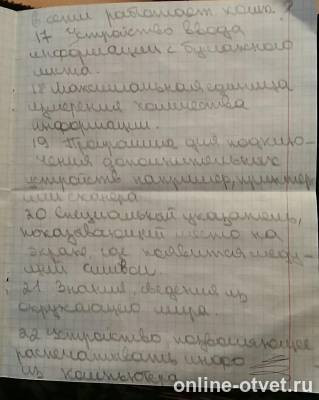 в сети работает комп?
17 Устройство ввода
информации с бумажного
листа.
18 Максимальная единица
измерения количества
информации.
19 Программа для подклю-
чения дополнительных
устройств например, принтер
или сканера
20 Специальный указатель,
показывающий место на
экране, где появится следу-
щий символ.
21 Знания, сведения из
окружающего мира.
22 Устройство, позволяющее
распечатывать инфо
из компьютера
online-otvet.ru